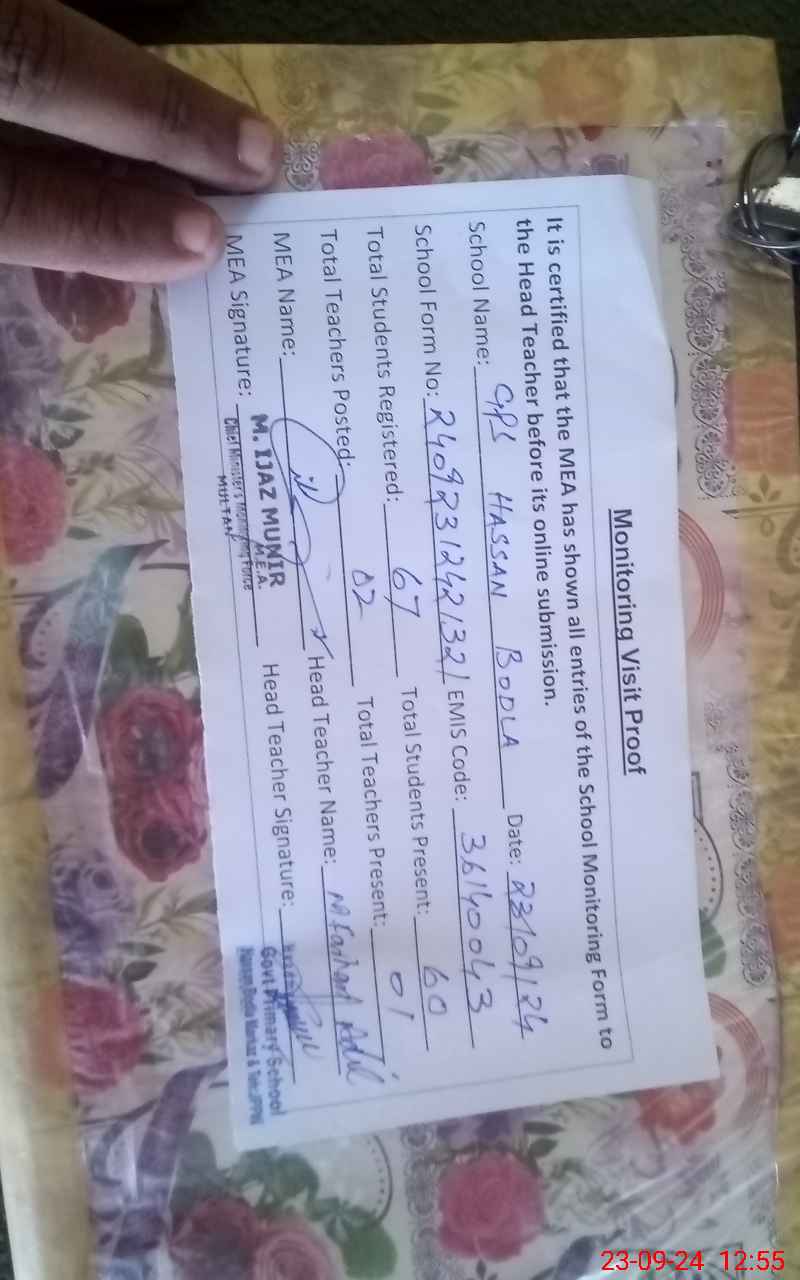 Monitoring Visit Proof
It is certified that the MEA has shown all entries of the School Monitoring Form to
the Head Teacher before its online submission.
School Name: GPS HASSAN BODLA Date: 23/09/24
School Form No: 24092312421321 EMIS Code: 36140043
Total Students Registered: 67 Total Students Present: 60
Total Teachers Posted: 02 Total Teachers Present: 01
MEA Name: Head Teacher Name: M Farhad Adil
MEA Signature: Head Teacher Signature:
M. IJAZ MUNIR
M.E.A.
Chief Minister's Monitoring Force
MULTAN
Govt Primary School
23-09-24 12:55